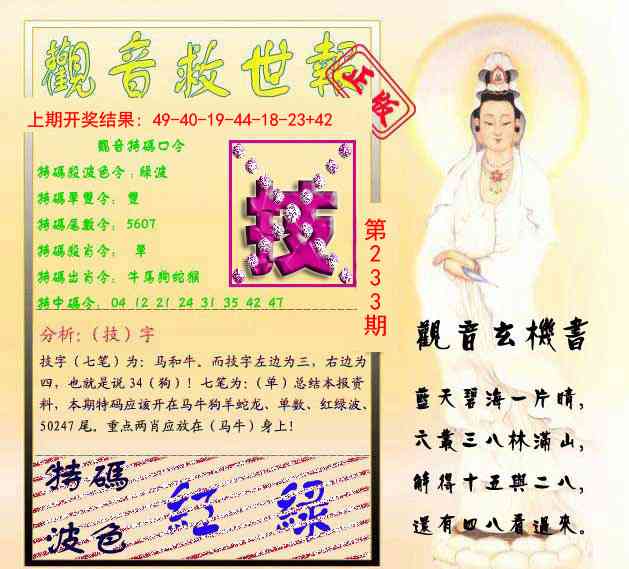 觀音救世報
正版
上期开奖结果：49-40-19-44-18-23+42
觀音特碼口令
特碼殺波色令：綠波
特碼單雙令： 雙
特碼尾數令： 5607
特碼殺肖令： 單
特碼出肖令： 牛馬狗蛇猴
特中碼令： 04 12 21 24 31 35 42 47
技
第233期
分析:（技）字
技字（七笔）为：马和牛。而技字左边为三，右边为
四，也就是说 34（狗）！七笔为:（单）总结本报资
料，本期特码应该开在马牛狗羊蛇龙、单数、红绿波、
50247 尾。重点两肖应放在（马牛）身上！
特碼
波色
紅 綠
觀音玄機書
藍天碧海一片晴，
六叢三八林滿山，
解得十五與二八，
還有四八看過來。